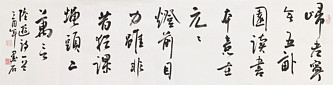 歸老寧
無五畝
園讀書
本意在
元元
燈前目
力雖非
昔猶課
蠅頭二
萬言
陸游詩一首